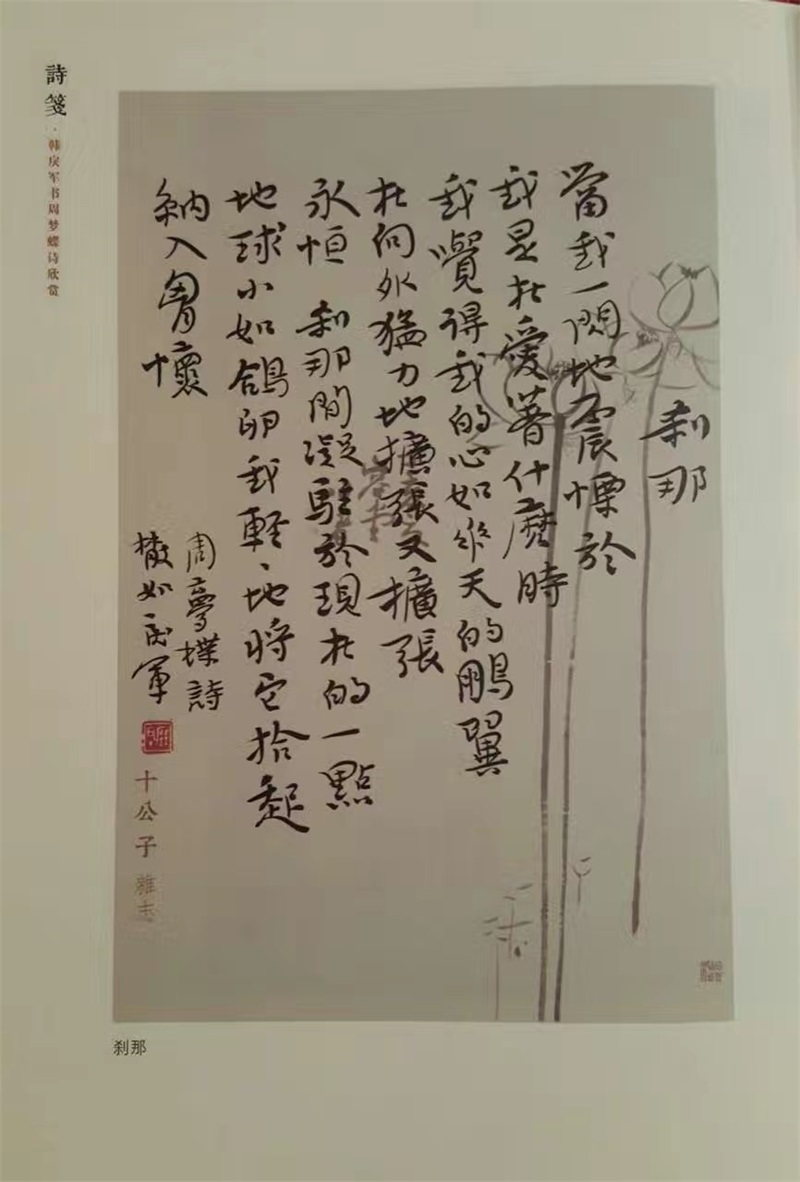 詩箋·韩戾军书周梦蝶诗欣赏
刹那
當我一閃地震慄於
我是在愛著什麼時
我覺得我的心如垂天的鵬翼
在向外猛力地擴張又擴張
永恒 刹那間凝駐於現在的一點
地球小如鴿卵我輕、地將它拾起
納入胷懷
周夢蝶詩
軍
十公子 雜志
刹那